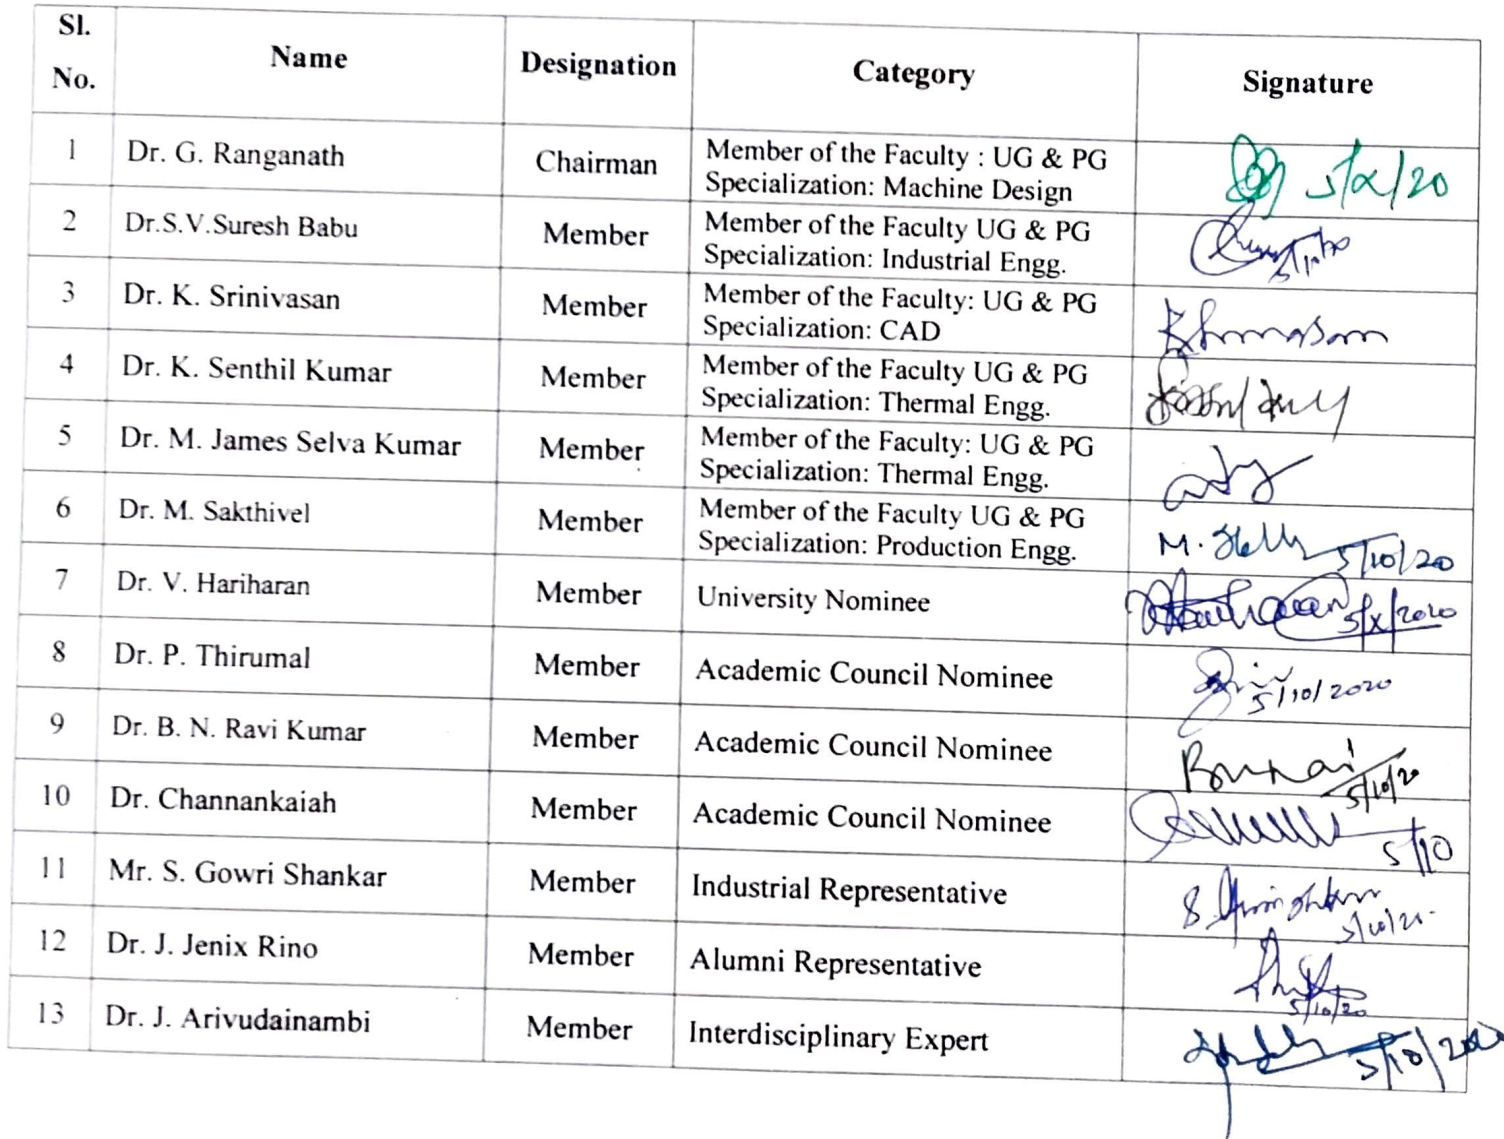 Sl. No. Name Designation Category Signature
1 Dr. G. Ranganath Chairman Member of the Faculty : UG & PG
Specialization: Machine Design 5/X/20
2 Dr.S.V.Suresh Babu Member Member of the Faculty UG & PG
Specialization: Industrial Engg.
3 Dr. K. Srinivasan Member Member of the Faculty: UG & PG
Specialization: CAD
4 Dr. K. Senthil Kumar Member Member of the Faculty UG & PG
Specialization: Thermal Engg.
5 Dr. M. James Selva Kumar Member Member of the Faculty: UG & PG
Specialization: Thermal Engg.
6 Dr. M. Sakthivel Member Member of the Faculty UG & PG
Specialization: Production Engg. 5/10/20
7 Dr. V. Hariharan Member University Nominee 5/X/2020
8 Dr. P. Thirumal Member Academic Council Nominee 5/10/2020
9 Dr. B. N. Ravi Kumar Member Academic Council Nominee 5/10/20
10 Dr. Channankaiah Member Academic Council Nominee 5/10
11 Mr. S. Gowri Shankar Member Industrial Representative
12 Dr. J. Jenix Rino Member Alumni Representative 5/10/20
13 Dr. J. Arivudainambi Member Interdisciplinary Expert 5/10/2020